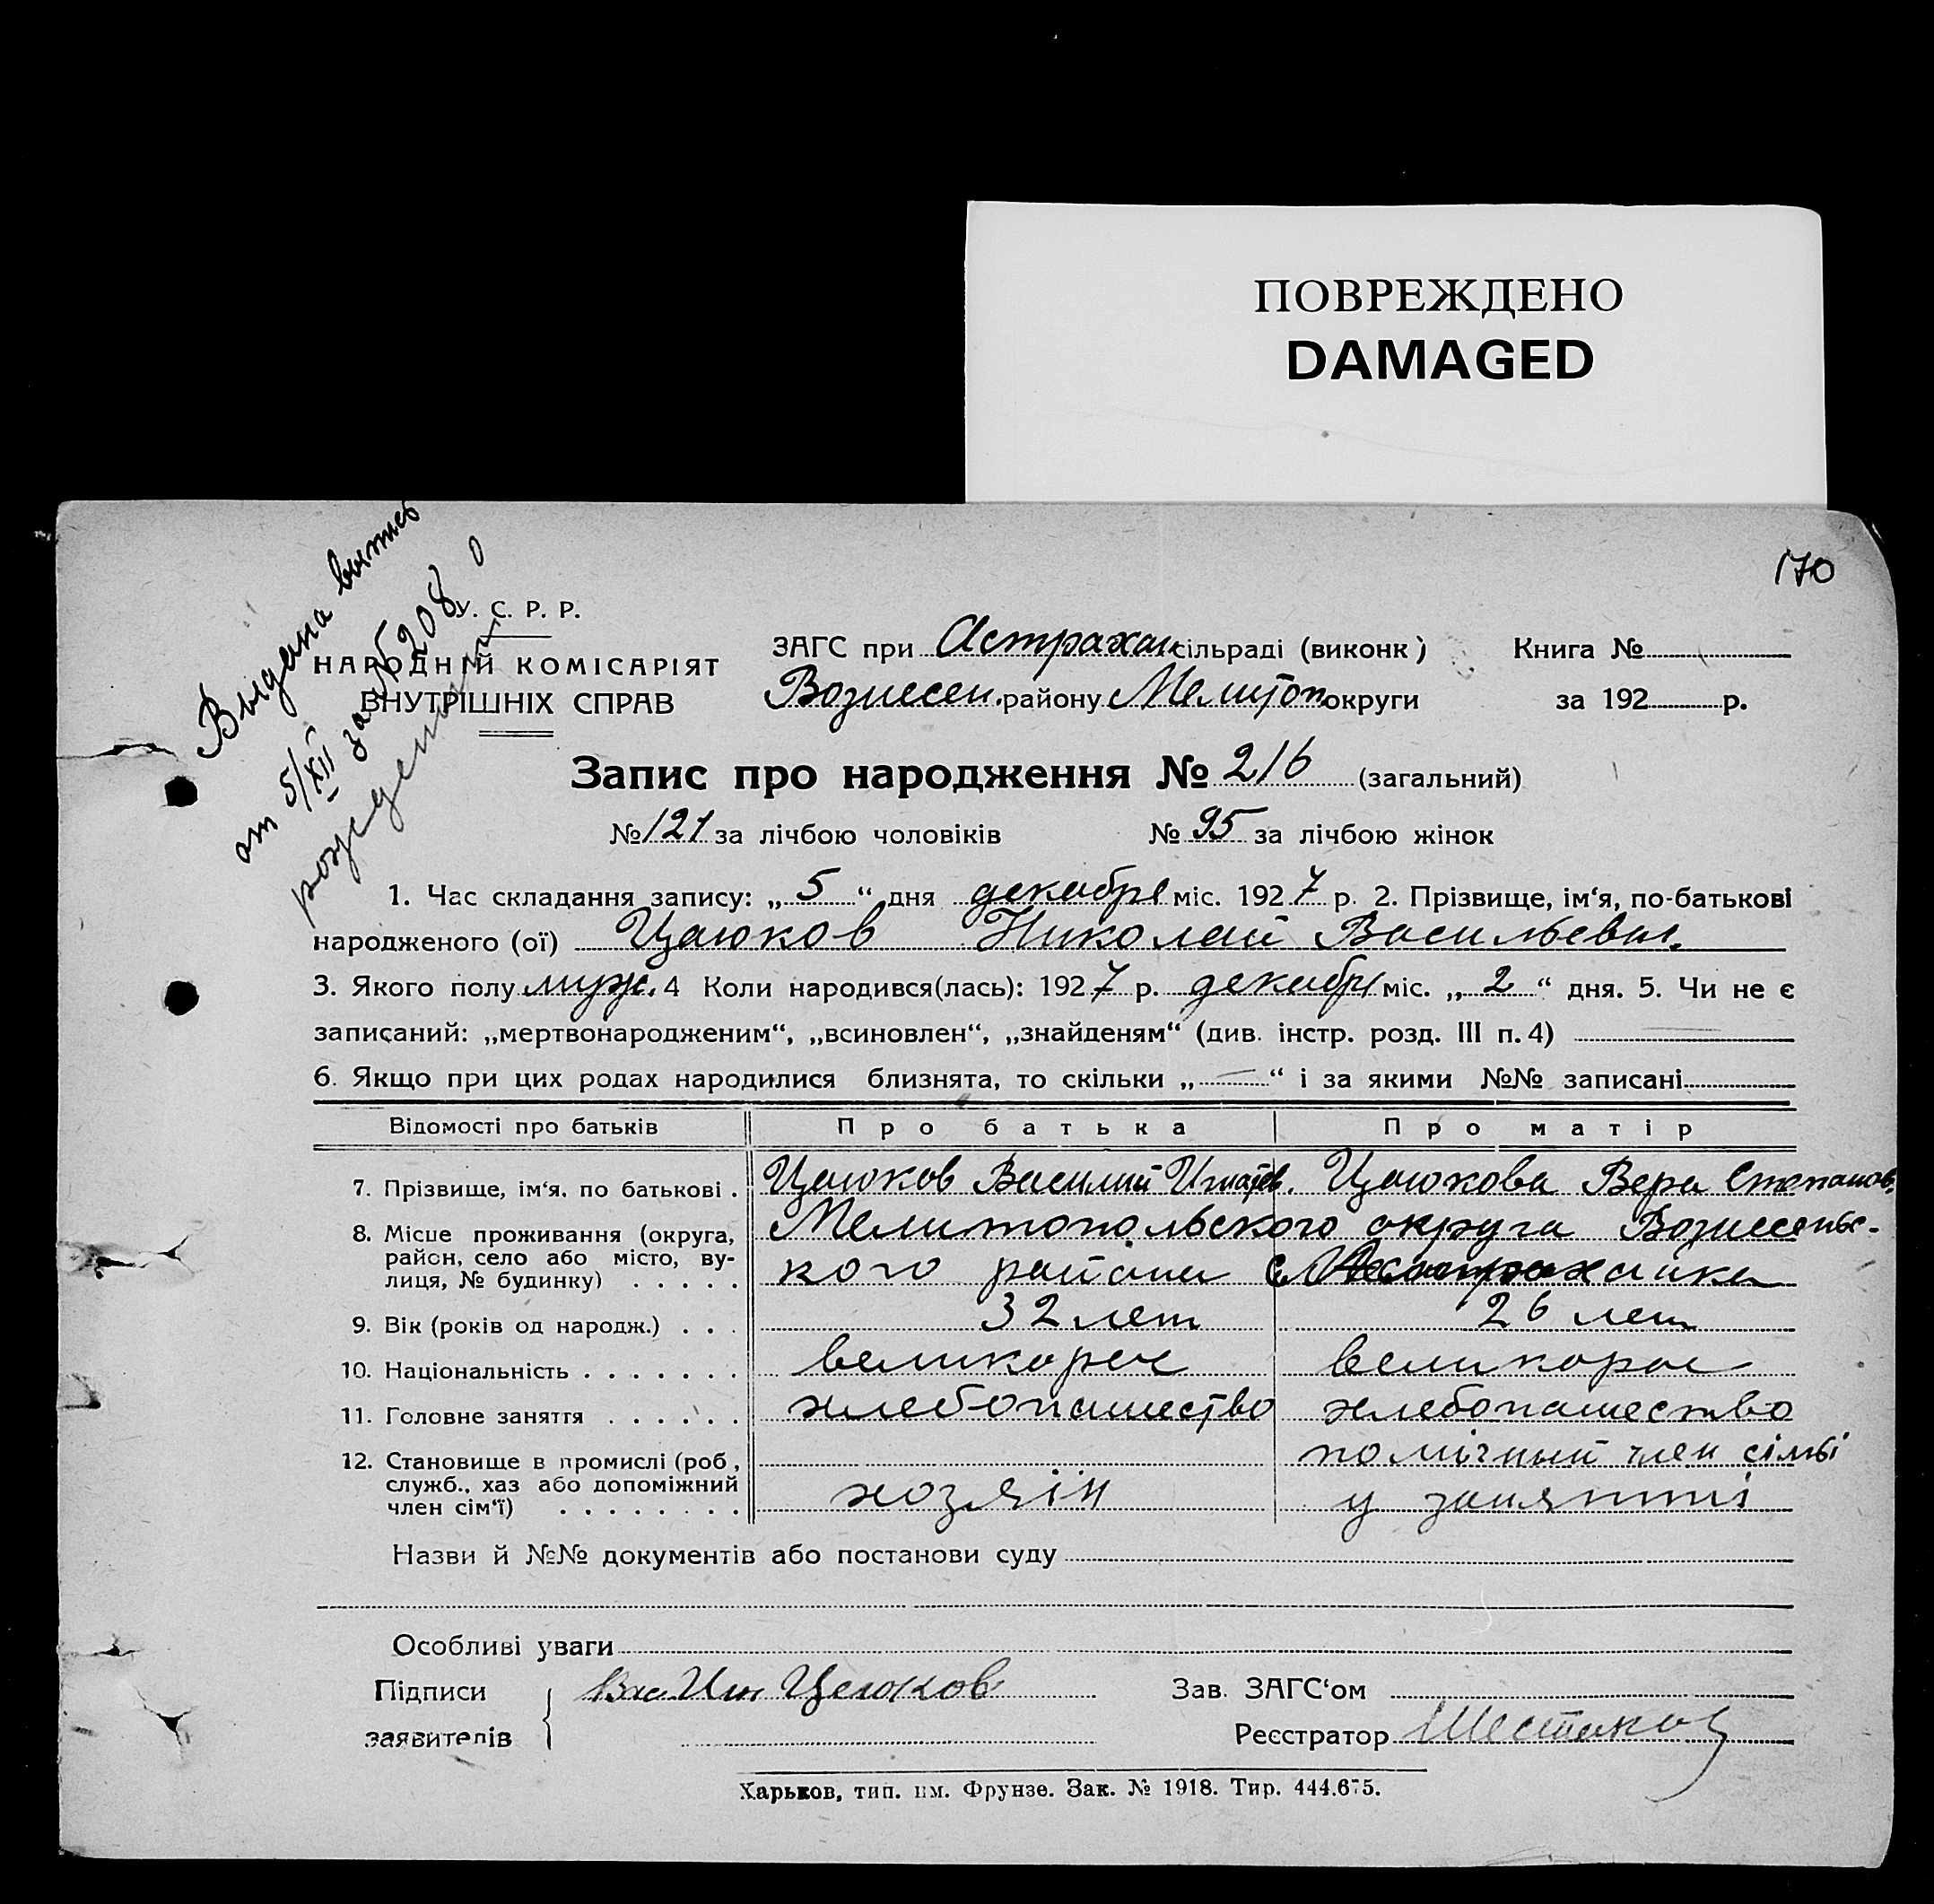 ПОВРЕЖДЕНО
DAMAGED
170
Выдана выпись
от 5/XII за № 208 о
рождении
У. С. Р. Р.
НАРОДНІЙ КОМІСАРІЯТ
ВНУТРІШНІХ СПРАВ
ЗАГС при Астрахан сільраді (виконк) Книга №
Вознесен. району Мелитоп округи за 192 р.
Запис про народження № 216 (загальний)
№ 121 за лічбою чоловіків № 95 за лічбою жінок
1. Час складання запису: „ 5 “ дня декабря міс. 1927 р. 2. Прізвище, ім‘я, по-батькові
народженого (ої) Цаюков Николай Васильевич.
3. Якого полу муж. 4 Коли народився(лась): 1927 р. декабря міс. „ 2 “ дня. 5. Чи не є
записаний: „мертвонародженим“, „всиновлен“, „знайденям“ (див. інстр. розд. III п. 4)
6. Якщо при цих родах народилися близнята, то скільки „ — “ і за якими №№ записані
Відомості про батьків Про батька Про матір
7. Прізвище, ім‘я, по батькові . Цаюков Василий Игнатев. Цаюкова Вера Степанов.
8. Місце проживання (округа, район, село або місто, вулиця, № будинку) . . . . . Мелитопольского округа Вознесеньс-
кого района с. Астраханка
9. Вік (років од народж.) . . . 32 лет 26 лет
10. Національність . . . . . . . великорос великорос
11. Головне заняття . . . . . . хлебопашество хлебопашество
12. Становище в промислі (роб, служб., хаз або допоміжний член сім‘ї) . . . . . . . . хозяін помічный член сімьі
у занятті
Назви й №№ документів або постанови суду
Особливі уваги
Підписи Вас Игн Цаюков Зав. ЗАГС‘ом
заявителів Реєстратор Шестаков
Харьков, тип. им. Фрунзе. Зак. № 1918. Тир. 444.675.